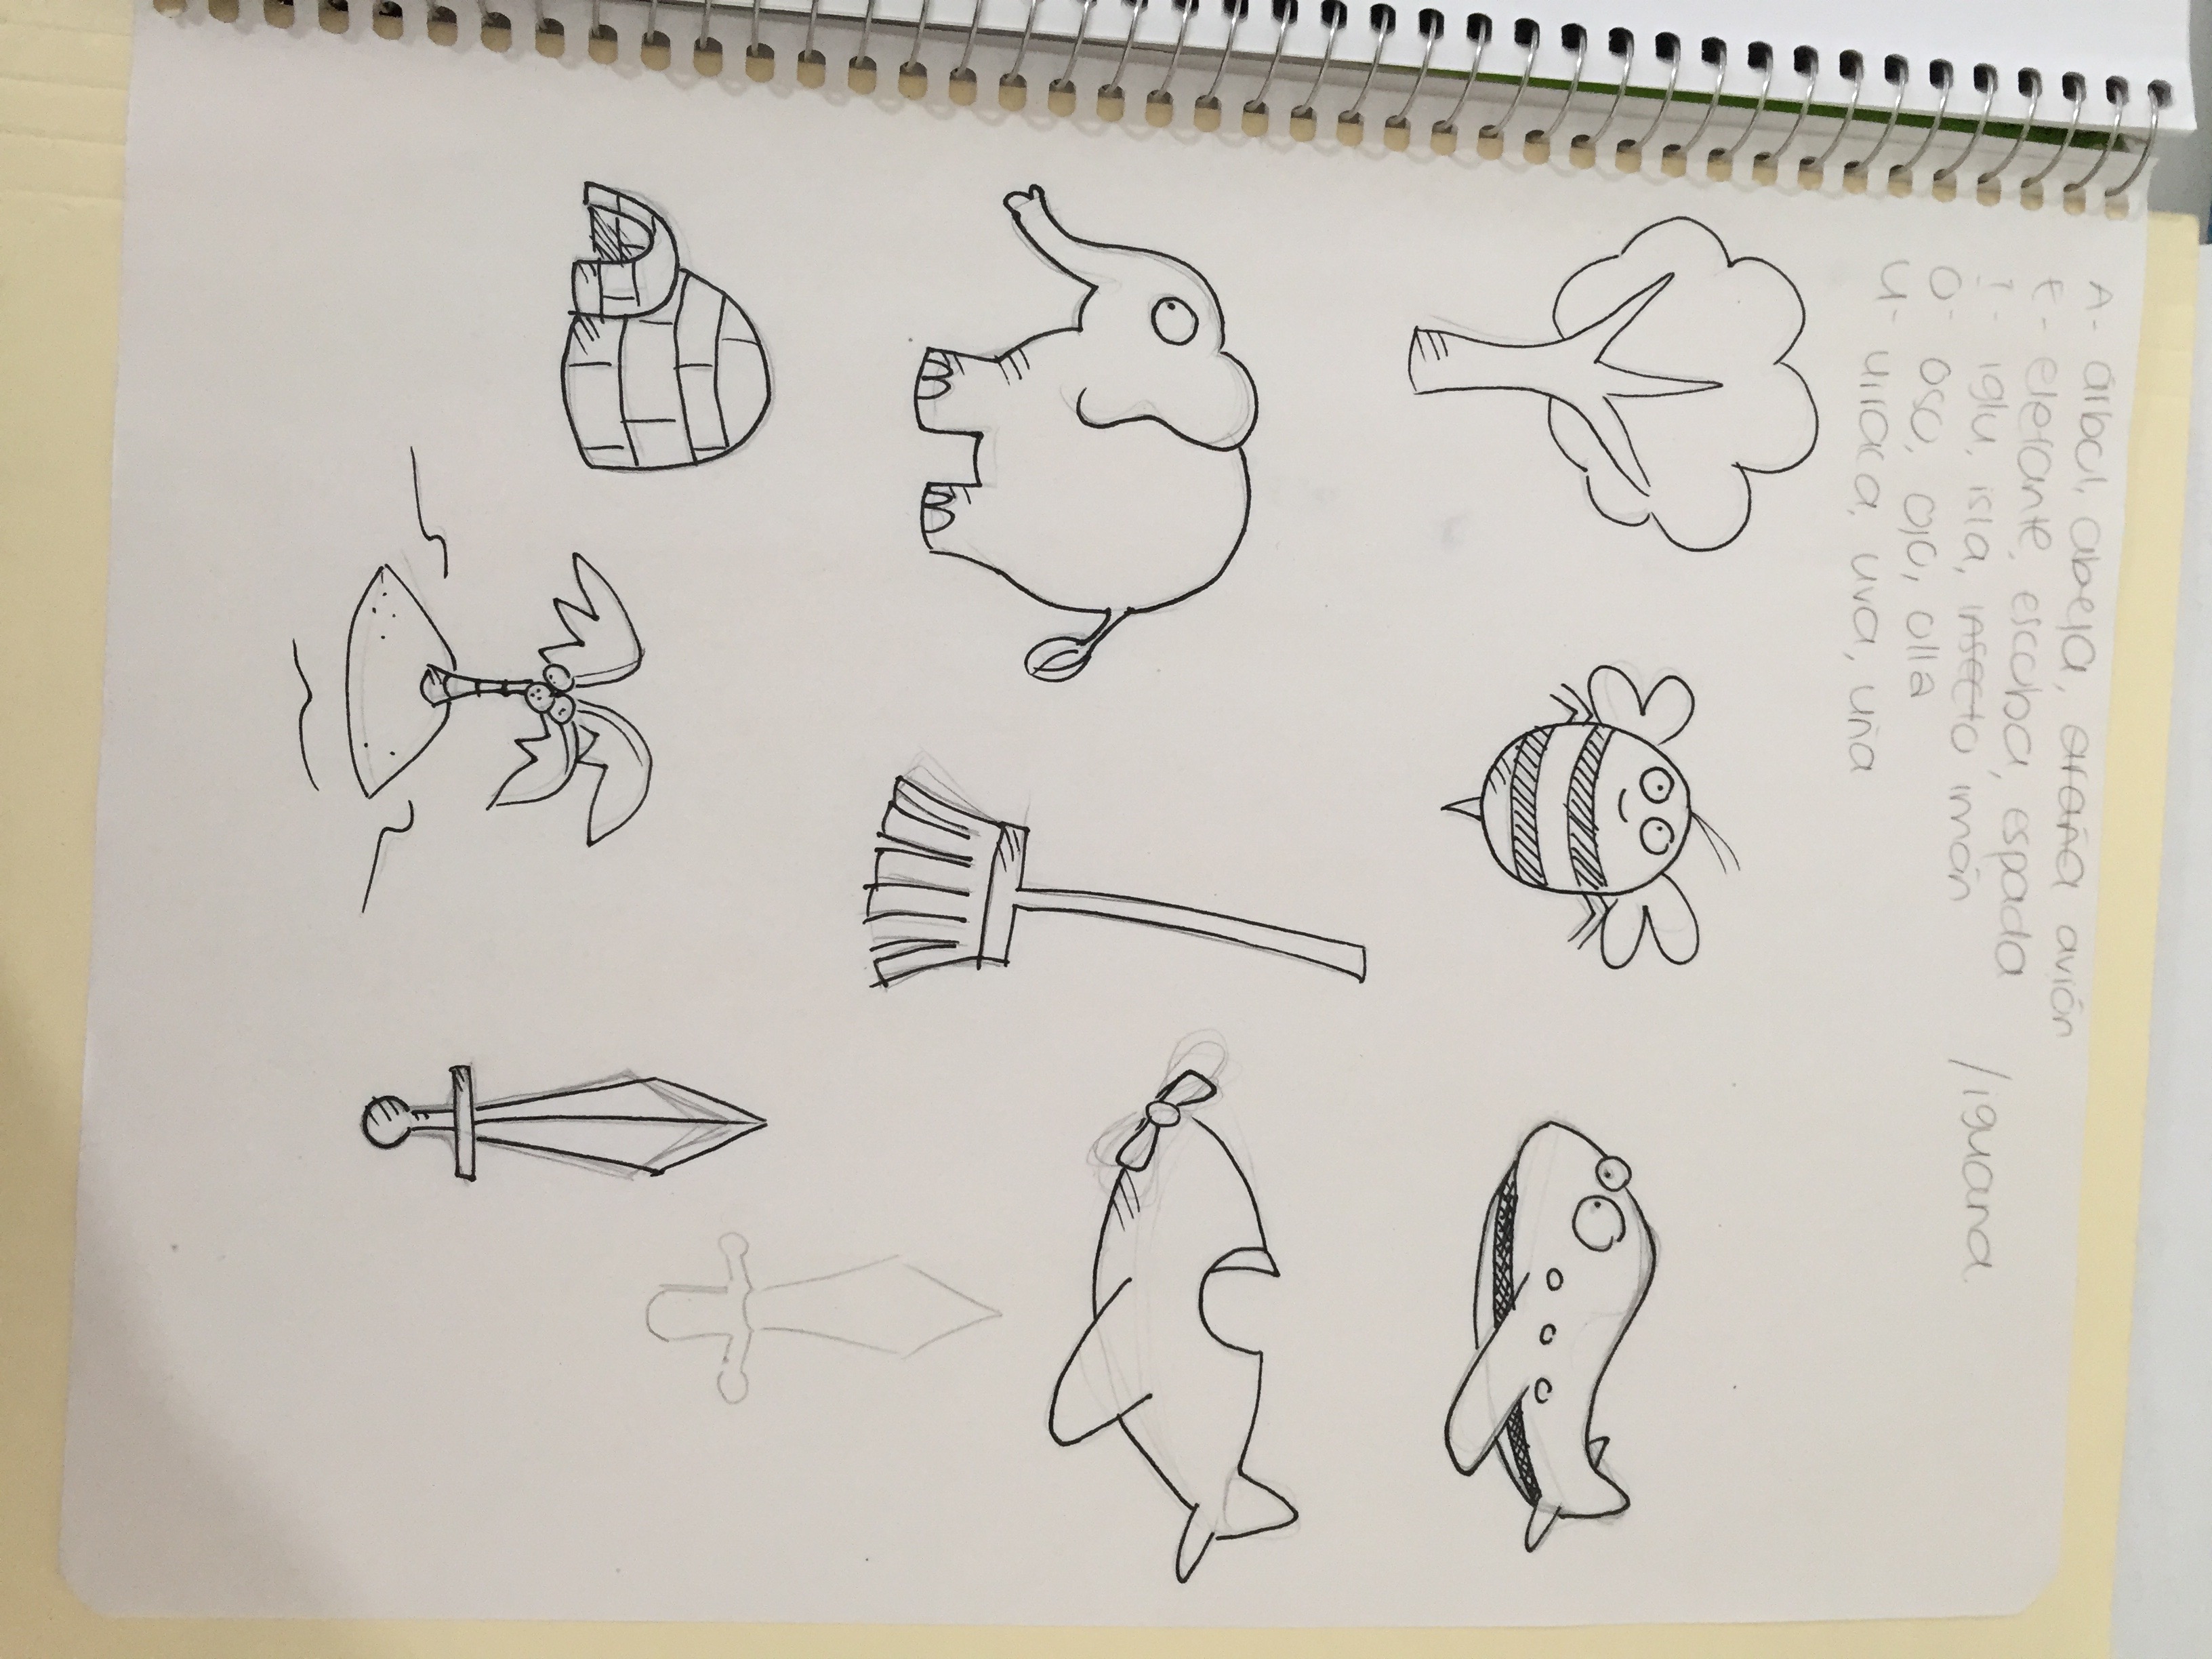 A- árbol, abeja, araña avión
E- elefante, escoba, espada
I- iglu, isla, insecto imán /iguana
O- oso, ojo, olla
U- urraca, uva, uña